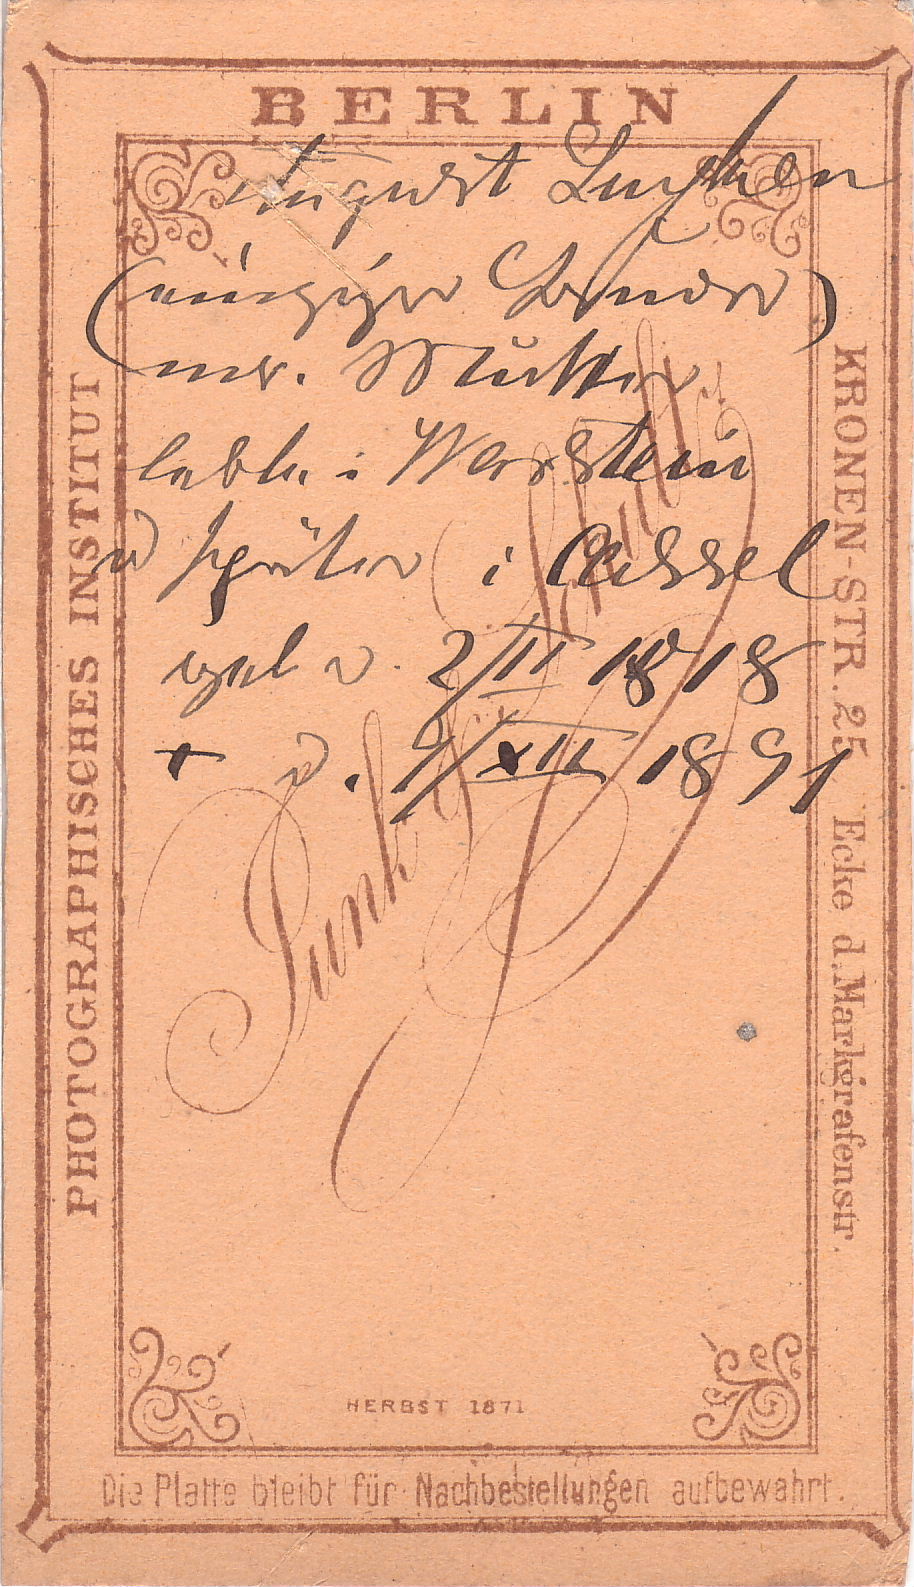 BERLIN
August
(einziger Bruder)
mr. Mutter
lebte i
u später i Cassel
geb d. 2/II 1818
+ d. 9/XII 1891
PHOTOGRAPHISCHES INSTITUT
KRONEN-STR. 25 Ecke d. Markgrafenstr.
HERBST 1871
Die Platte bleibt für Nachbestellungen aufbewahrt.